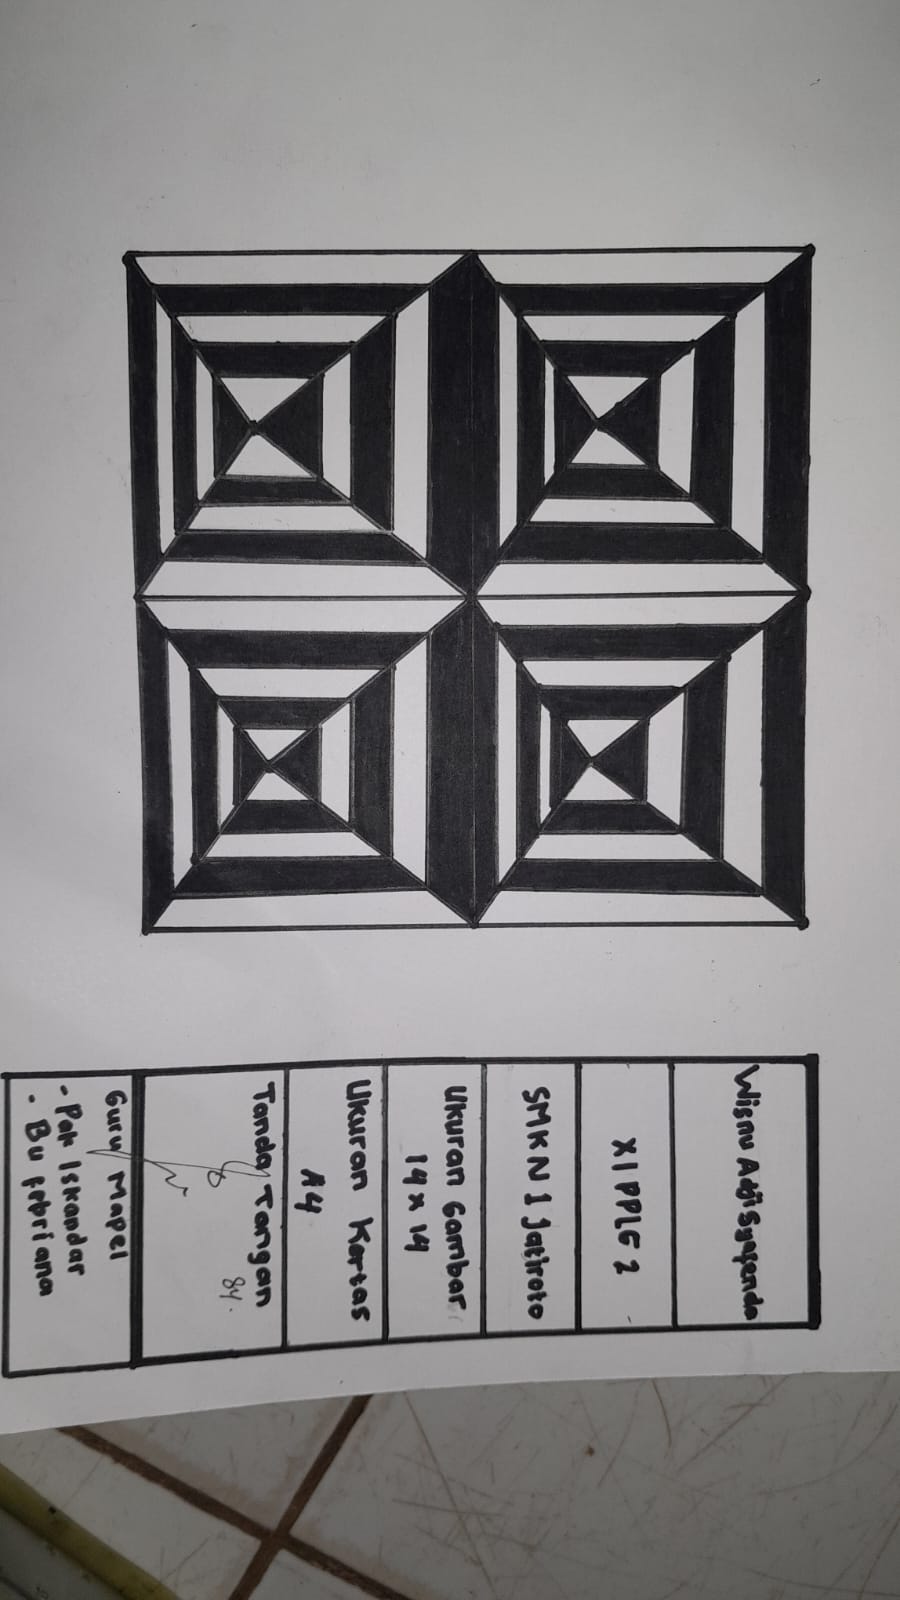 Wisnu Adji Syafendo
XI PPLG 2
SMKN 1 Jatiroto
Ukuran Gambar
14 x 14
Ukuran Kertas
A4
Tanda Tangan
84.
Guru Mapel
- Pak Iskandar
- Bu febriana